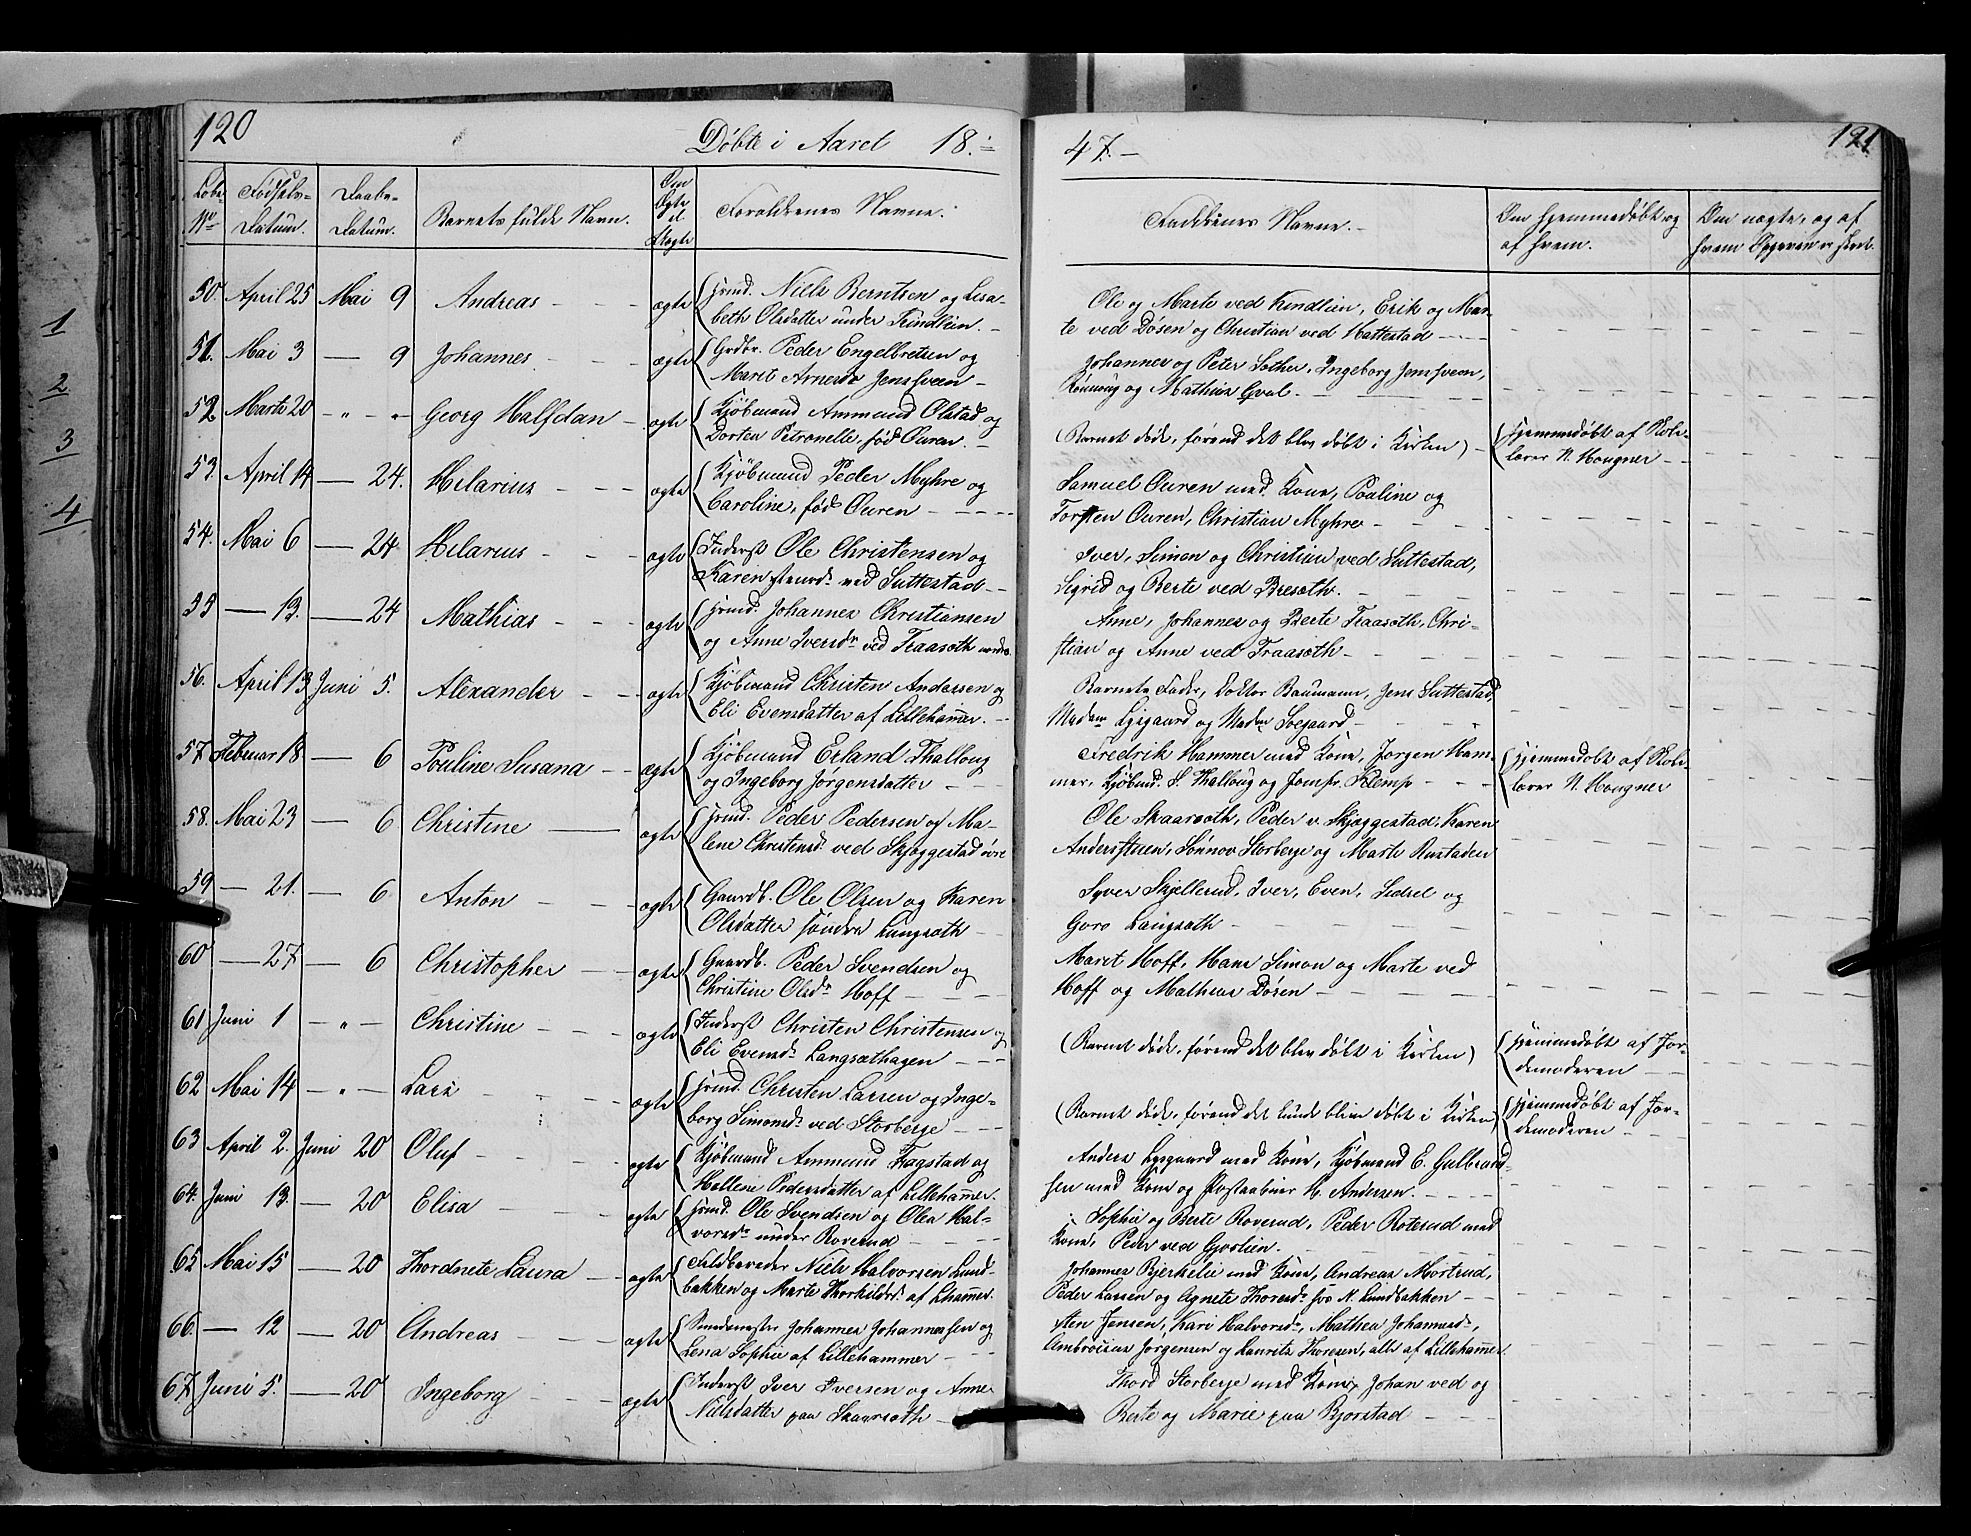 120
Døbte i Aaret 18
47.
121
Løbe No
Fødsels-Datum.
Daabs-Datum.
Barnets fulde Navn.
Om Ægte el. Uægte
Forældrenes Navne.
Faddernes Navne.
Om hjemmedøbt og af hvem.
Om uægte, og af hvem Opgaven er skeet.
1
2
3
4
50. April 25 Mai 9 Andreas ægte Huusmd. Niels Berntsen og Lisa-
beth Olsdatter under Kindlien.
Ole og Marte ved Kindlien, Erik og Mar-
te ved Døsen og Christian ved Hattestad
51. Mai 3 — 9 Johannes ægte Grdbr. Peder Engelbretsen og
Marit Arnesd. Jenssveen
Johannes og Peter Sother, Ingeborg Jenssveen,
Rønnoug og Mathias Hval.
52 Marts 20 Georg Halfdan ægte Kjøbmand Ammund Olstad og
Dorten Petronelle, fød Øuren.
(Barnet døde, førend det blev døbt i Kirken)
hjemmedøbt af Skole-
lærer N. Hougner
53. April 14 — 24. Hilarius ægte Kjøbmand Peder Myhre og
Caroline, fød Øuren
Samuel Øuren med Kone, Pouline og
Torsten Øuren, Christian Myhre
54. Mai 6 — 24 Hilarius ægte Inderst Ole Christensen og
Karen ved Suttestad
Iver, Simon og Christian ved Suttestad,
Sigrid og Berte ved Bresæth.
55 — 13. — 24 Mathias ægte Huusmd. Johannes Christiansen
og Anne Iversdr ved Traasæth nordre
Anne, Johannes og Berte Traasæth, Chri-
stian og Anne ved Traasæth
56. April 13 Juni 5. Alexander ægte Kjøbmand Christen Andersen og
Eli Evensdatter af Lillehamer.
Barnets Fader, Doktor Baumann, Jens Suttestad,
Madam Lysgaard og Madm Soegaard
57 Februar 18 — 6 Pouline Susana ægte Kjøbmand Erland Thalloug
og Ingeborg Jørgensdatter
Fredrik Hammer med Kone, Jørgen Ham-
mer, Kjøbmd. S. Thalloug og Jomfr. Klemp
hjemmedøbt af Skole-
lærer N. Hougner
58. Mai 23 — 6 Christine ægte Huusmd. Peder Pedersen og Ma-
lene Christensd. ved Skjæggestad øvre
Ole Skaarsæth, Peder v. Skjæggestad, Karen
Andersstuen, Sønnov Storberge og Marte Rustaden
59 — 21. — 6 Anton ægte Gaardb. Ole Olsen og Karen
Olsdatter søndre Langsæth
Syver Skjellerud, Iver, Even, Sidsel og
Goro Langsæth
60 — 27 — 6 Christopher ægte Gaardb. Peder Svendsen og
Christine Olsdr Hoff
Maret Hoff, Hans Simon og Marte ved
Hoff og Mathias Døsen
61 Juni 1 Christine ægte Inderst Christen Christensen og
Eli Evensdr Langsæthagen
(Barnet døde, førend det blev døbt i Kirken)
hjemmedøbt af Jor-
demoderen
62 Mai 14 Lars ægte Huusmd. Christen Larsen og Inge-
borg Simonsdr ved Storberge
(Barnet døde, førend det kunde blive døbt i Kirken)
hjemmedøbt af Jor-
demoderen
63 April 2. Juni 20 Oluf ægte Kjøbmand Ammund Fragstad og
Hellene Pedersdatter af Lillehamer.
Anders Lysgaard med Kone, Kjøbmand E. Gulbrand-
sen med Kone og Postaabner H. Andersen.
64. Juni 13. — 20 Elisa ægte Huusmd. Ole Svendsen og Olea Hal-
vorsdr under Roverud
Sophie og Berte Roverud, Peder Roterud med
Kone, Peder ved Gjørlien.
65 Mai 15 — 20 Thordnete Laura ægte Feldbereder Niels Halvorsen Lund-
bakken og Marte Thorkildsdr. af Lhamer.
Johannes Bjerkelie med Kone, Andreas Mortrud,
Peder Larsen og Agnete Thoresdr hos N. Lundbakken
66. — 12 — 20 Andreas ægte Smedemester Johannes Johannessen og
Lena Sophie af Lillehammer
Sten Jensen, Kari Halvorsdr, Mathea Johannesdr,
Ambrosius Jørgensen og Laurits Thoresen, alle af Lillehamer
67. Juni 5. — 20 Ingeborg ægte Inderst Iver Iversen og Anne
Nielsdatter paa Skaarsæth
Thord Storberge med Kone, Johan ved og
Berte og Marie paa Bjorstad